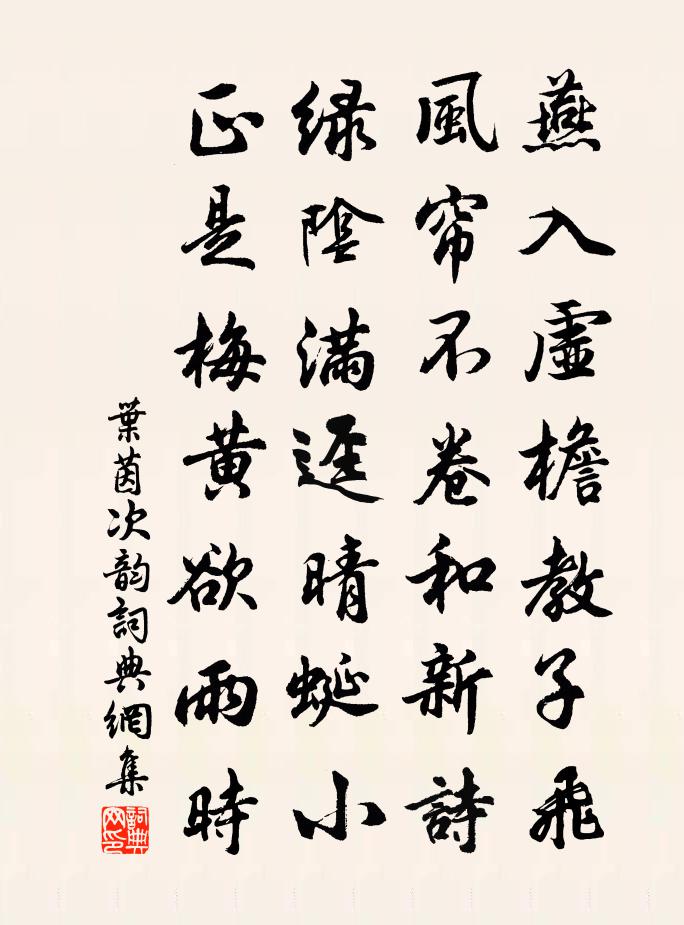 燕入虛檐教子飛
風帘不卷和新詩
綠陰滿逕晴蜒小
正是梅黃欲雨時
葉茵次韵詞典網集
詞典网印